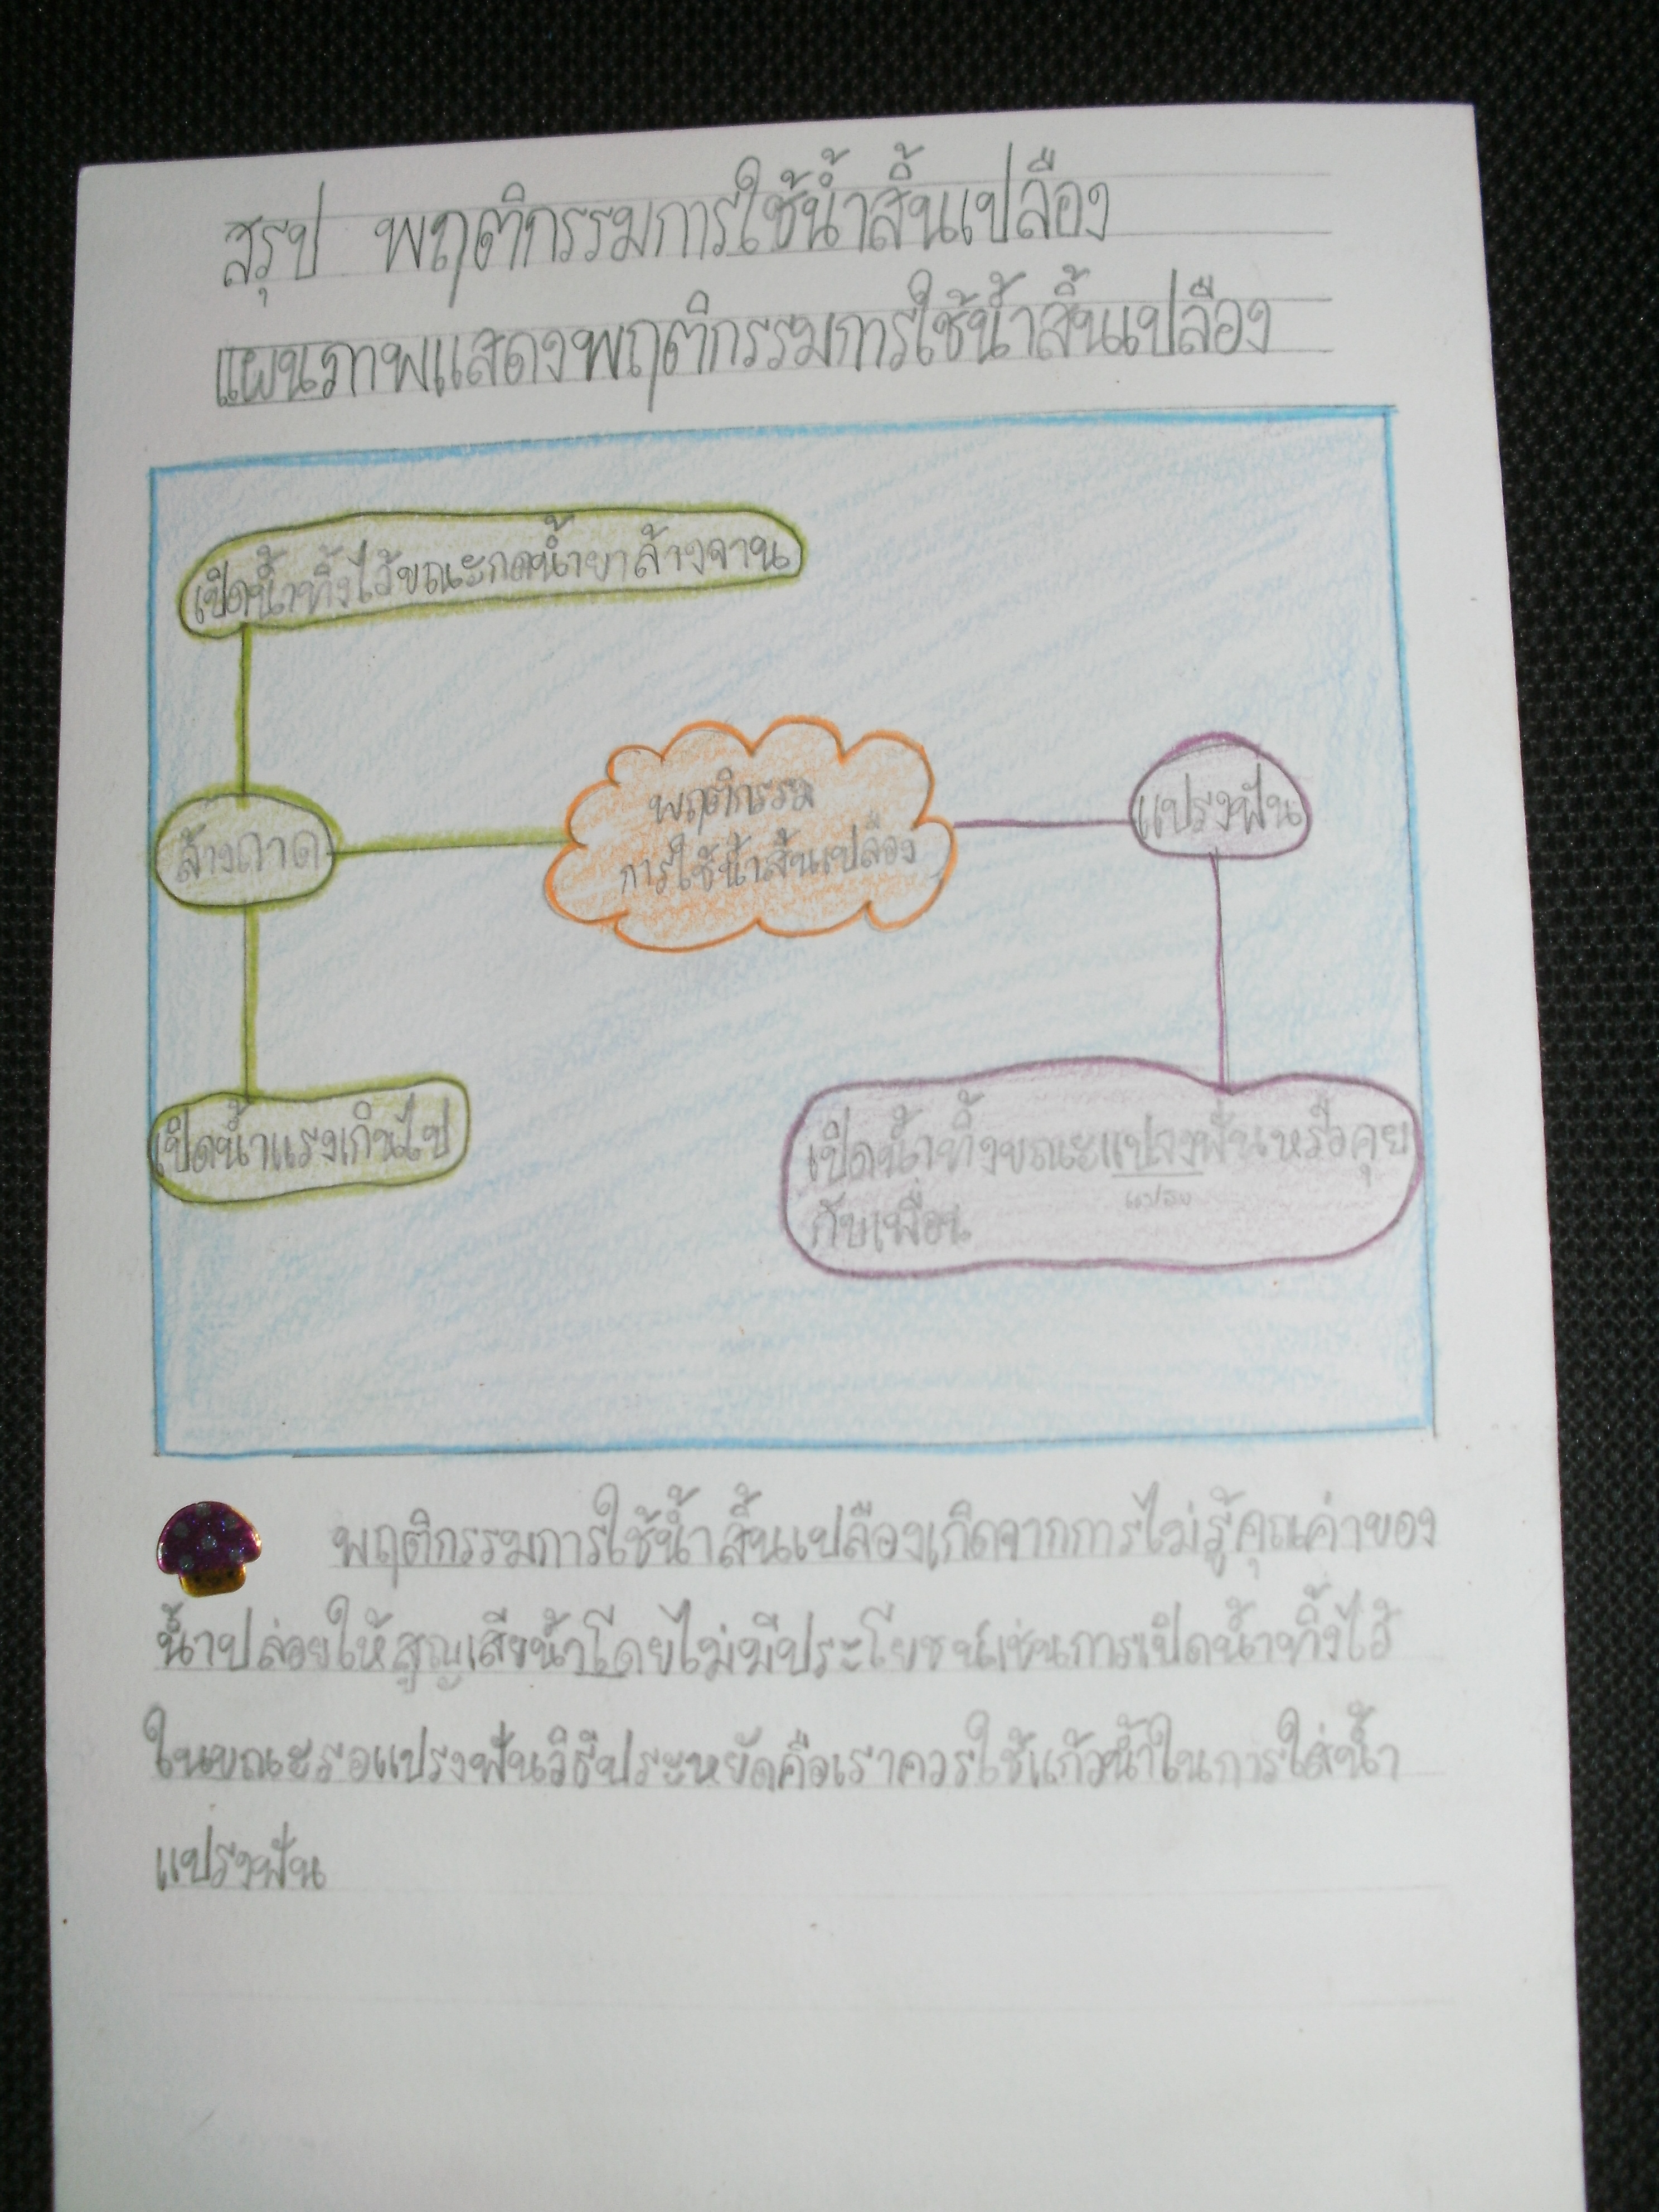 สรุป พฤติกรรมการใช้น้ำสิ้นเปลือง
แผนภาพแสดงพฤติกรรมการใช้น้ำสิ้นเปลือง
เปิดน้ำทิ้งไว้ขณะกดน้ำยาล้างจาน
พฤติกรรม
การใช้น้ำสิ้นเปลือง
แปรงฟัน
ล้างถาด
เปิดน้ำแรงเกินไป
เปิดน้ำทิ้งขณะแปลงฟันหรือคุย
แปรง
กับเพื่อน
พฤติกรรมการใช้น้ำสิ้นเปลืองเกิดจากการไม่รู้คุณค่าของ
น้ำปล่อยให้สูญเสียน้ำโดยไม่มีประโยชน์เช่นการเปิดน้ำทิ้งไว้
ในขณะรอแปรงฟันวิธีประหยัดคือเราควรใช้แก้วน้ำในการใส่น้ำ
แปรงฟัน